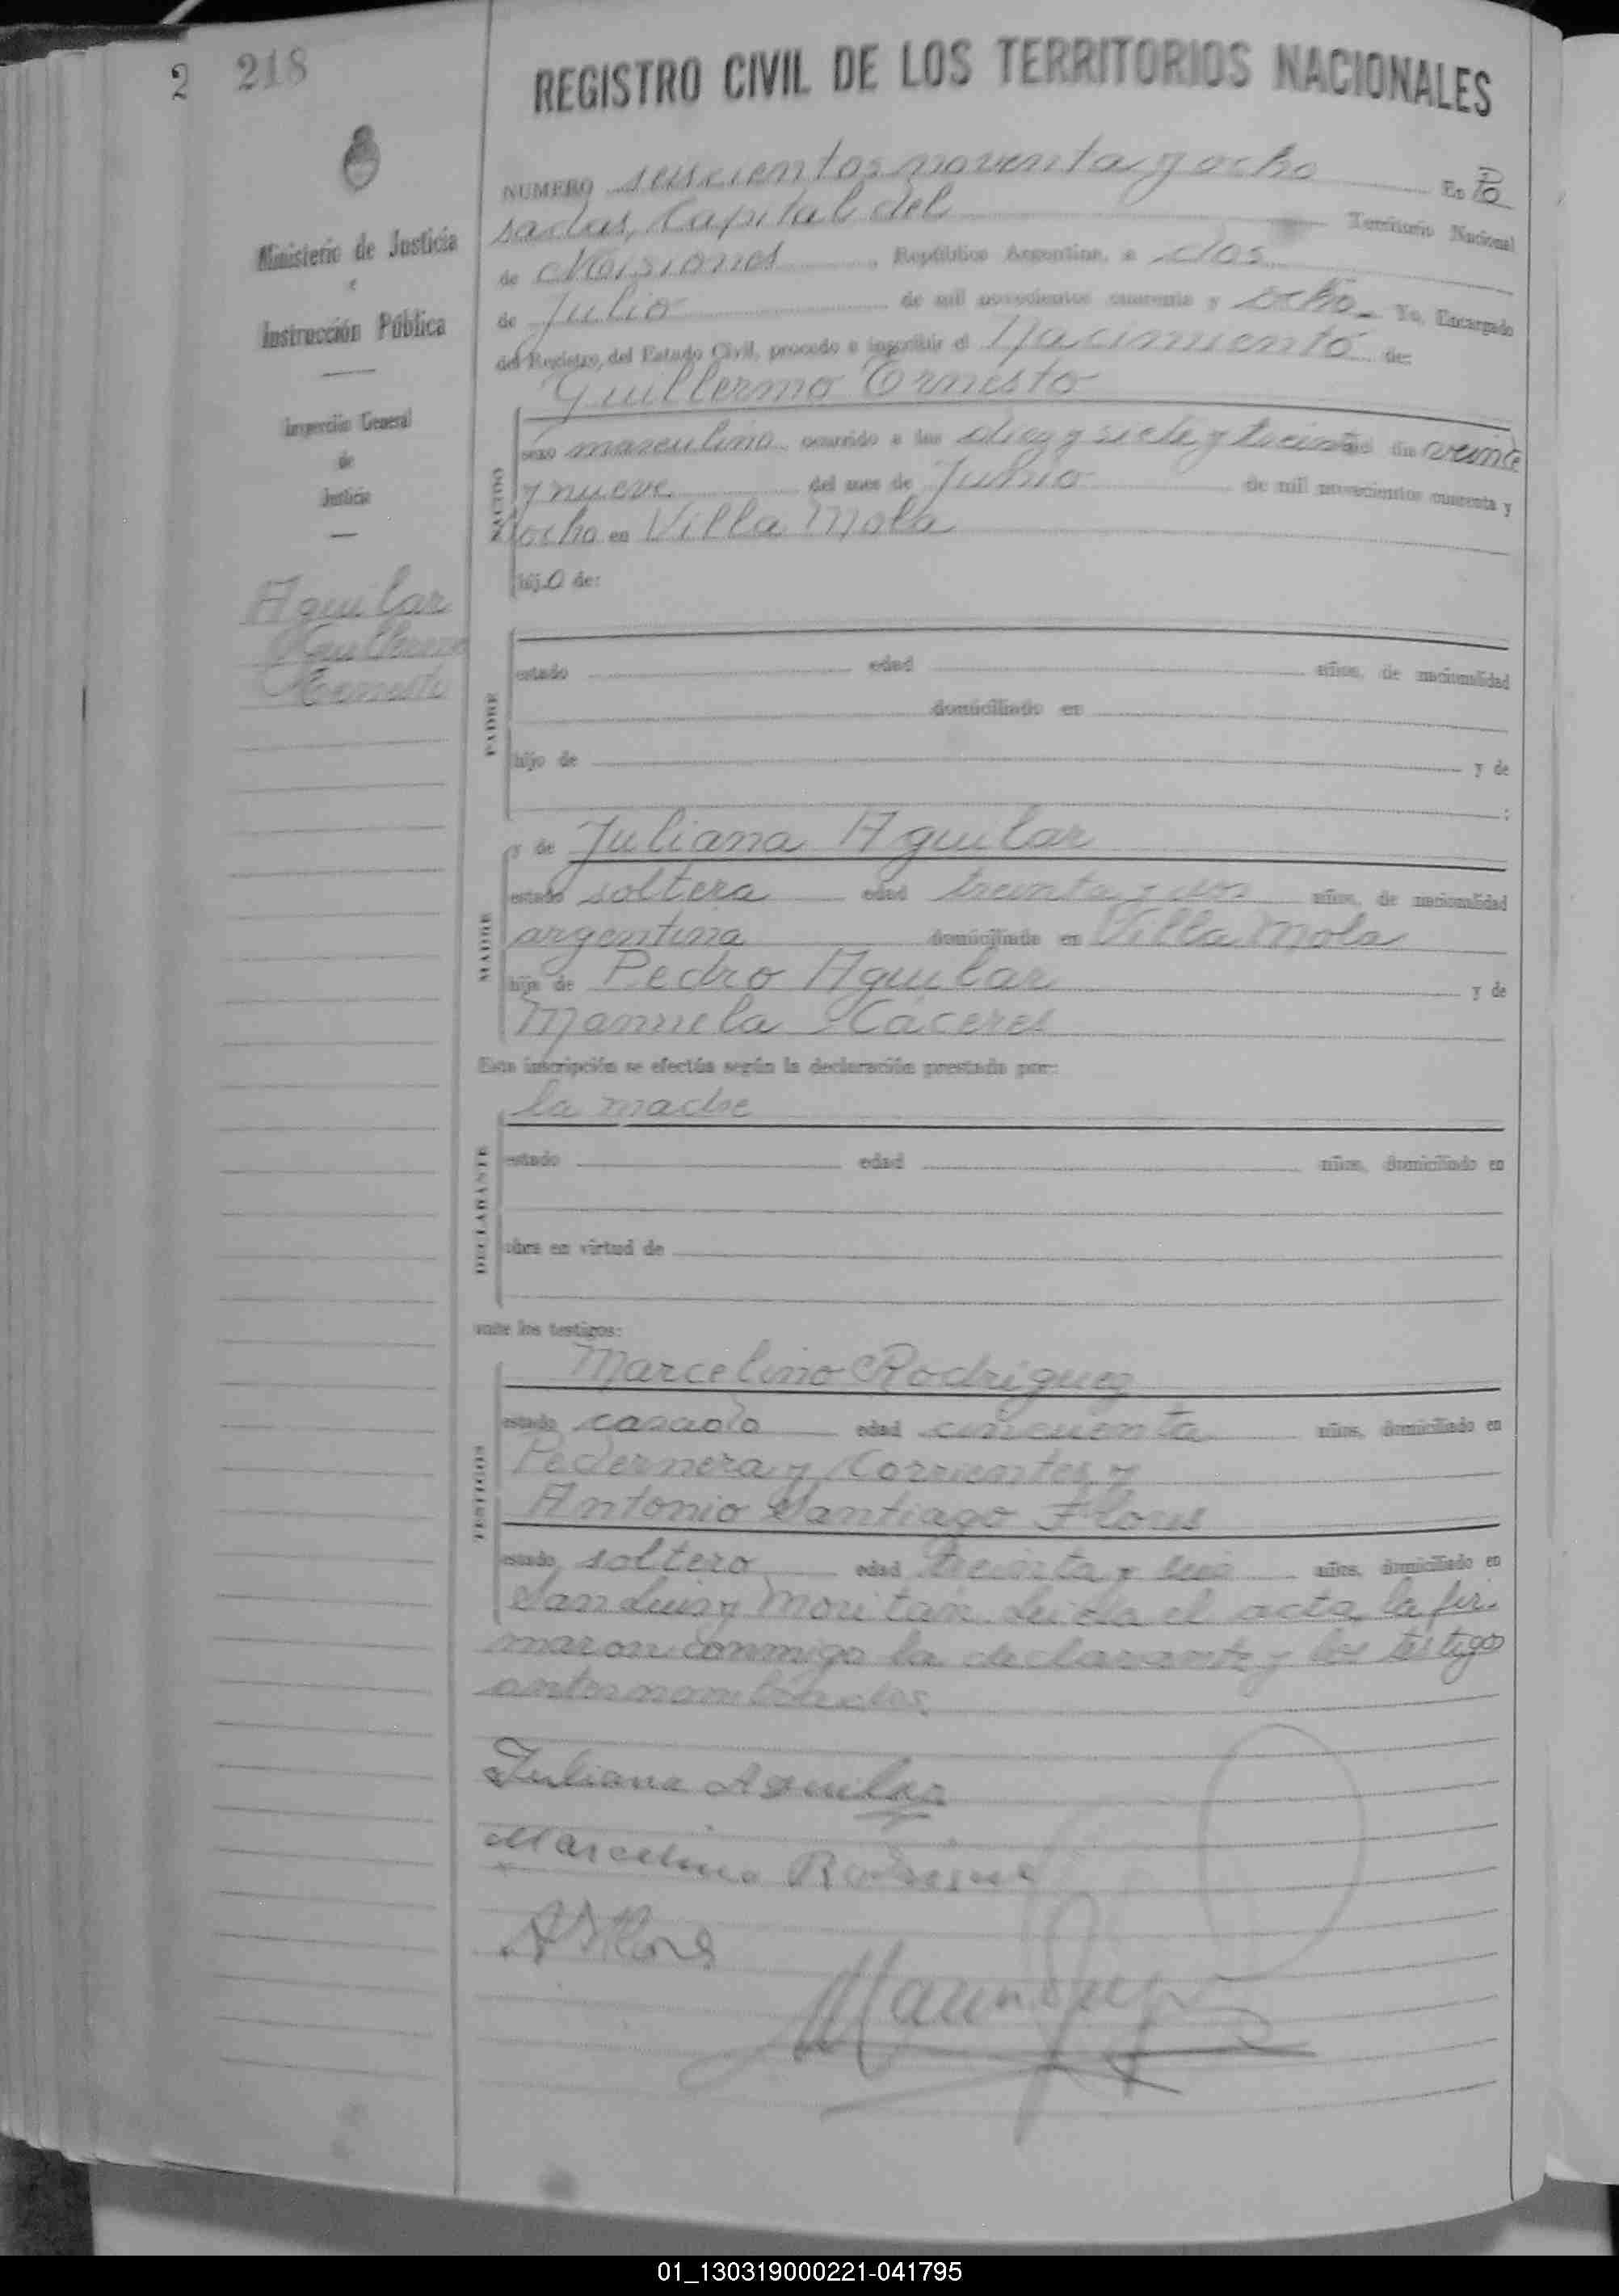 2 218
REGISTRO CIVIL DE LOS TERRITORIOS NACIONALES
Ministerio de Justicia
e
Instrucción Pública
Inspección General
de
Justicia
Aguilar
Guillermo
Ernesto
NUMERO seiscientos noventa y ocho En Po
sadas, Capital del Territorio Nacional
de Misiones, República Argentina, a dos
de Julio de mil novecientos cuarenta y ocho. Yo, Encargado
del Registro, del Estado Civil, procedo a inscribir el Nacimiento de:
Guillermo Ernesto
NACIDO
sexo masculino ocurrido a las diez y siete y treinta del día veinte
y nueve del mes de Junio de mil novecientos cuarenta y
ocho en Villa Mola
hijo de:
PADRE
estado edad años, de nacionalidad
domiciliado en
hijo de y de
:
MADRE
y de Juliana Aguilar
estado soltera edad treinta y dos años, de nacionalidad
argentina domiciliada en Villa Mola
hija de Pedro Aguilar y de
Manuela Cáceres
Esta inscripción se efectúa según la declaración prestada por:
la madre
DECLARANTE
estado edad años, domiciliado en
obra en virtud de
ante los testigos:
TESTIGOS
Marcelino Rodriguez
estado casado edad cincuenta años, domiciliado en
Pedernera y Corrientes y
Antonio Santiago Flores
estado soltero edad treinta y seis años, domiciliado en
San Luis y Moritán. Leída el acta, la fir.
maron conmigo la declarante y los testigos
antes nombrados.
Juliana Aguilar
Marcelino Rodrigue
A S Flores
01_130319000221-041795